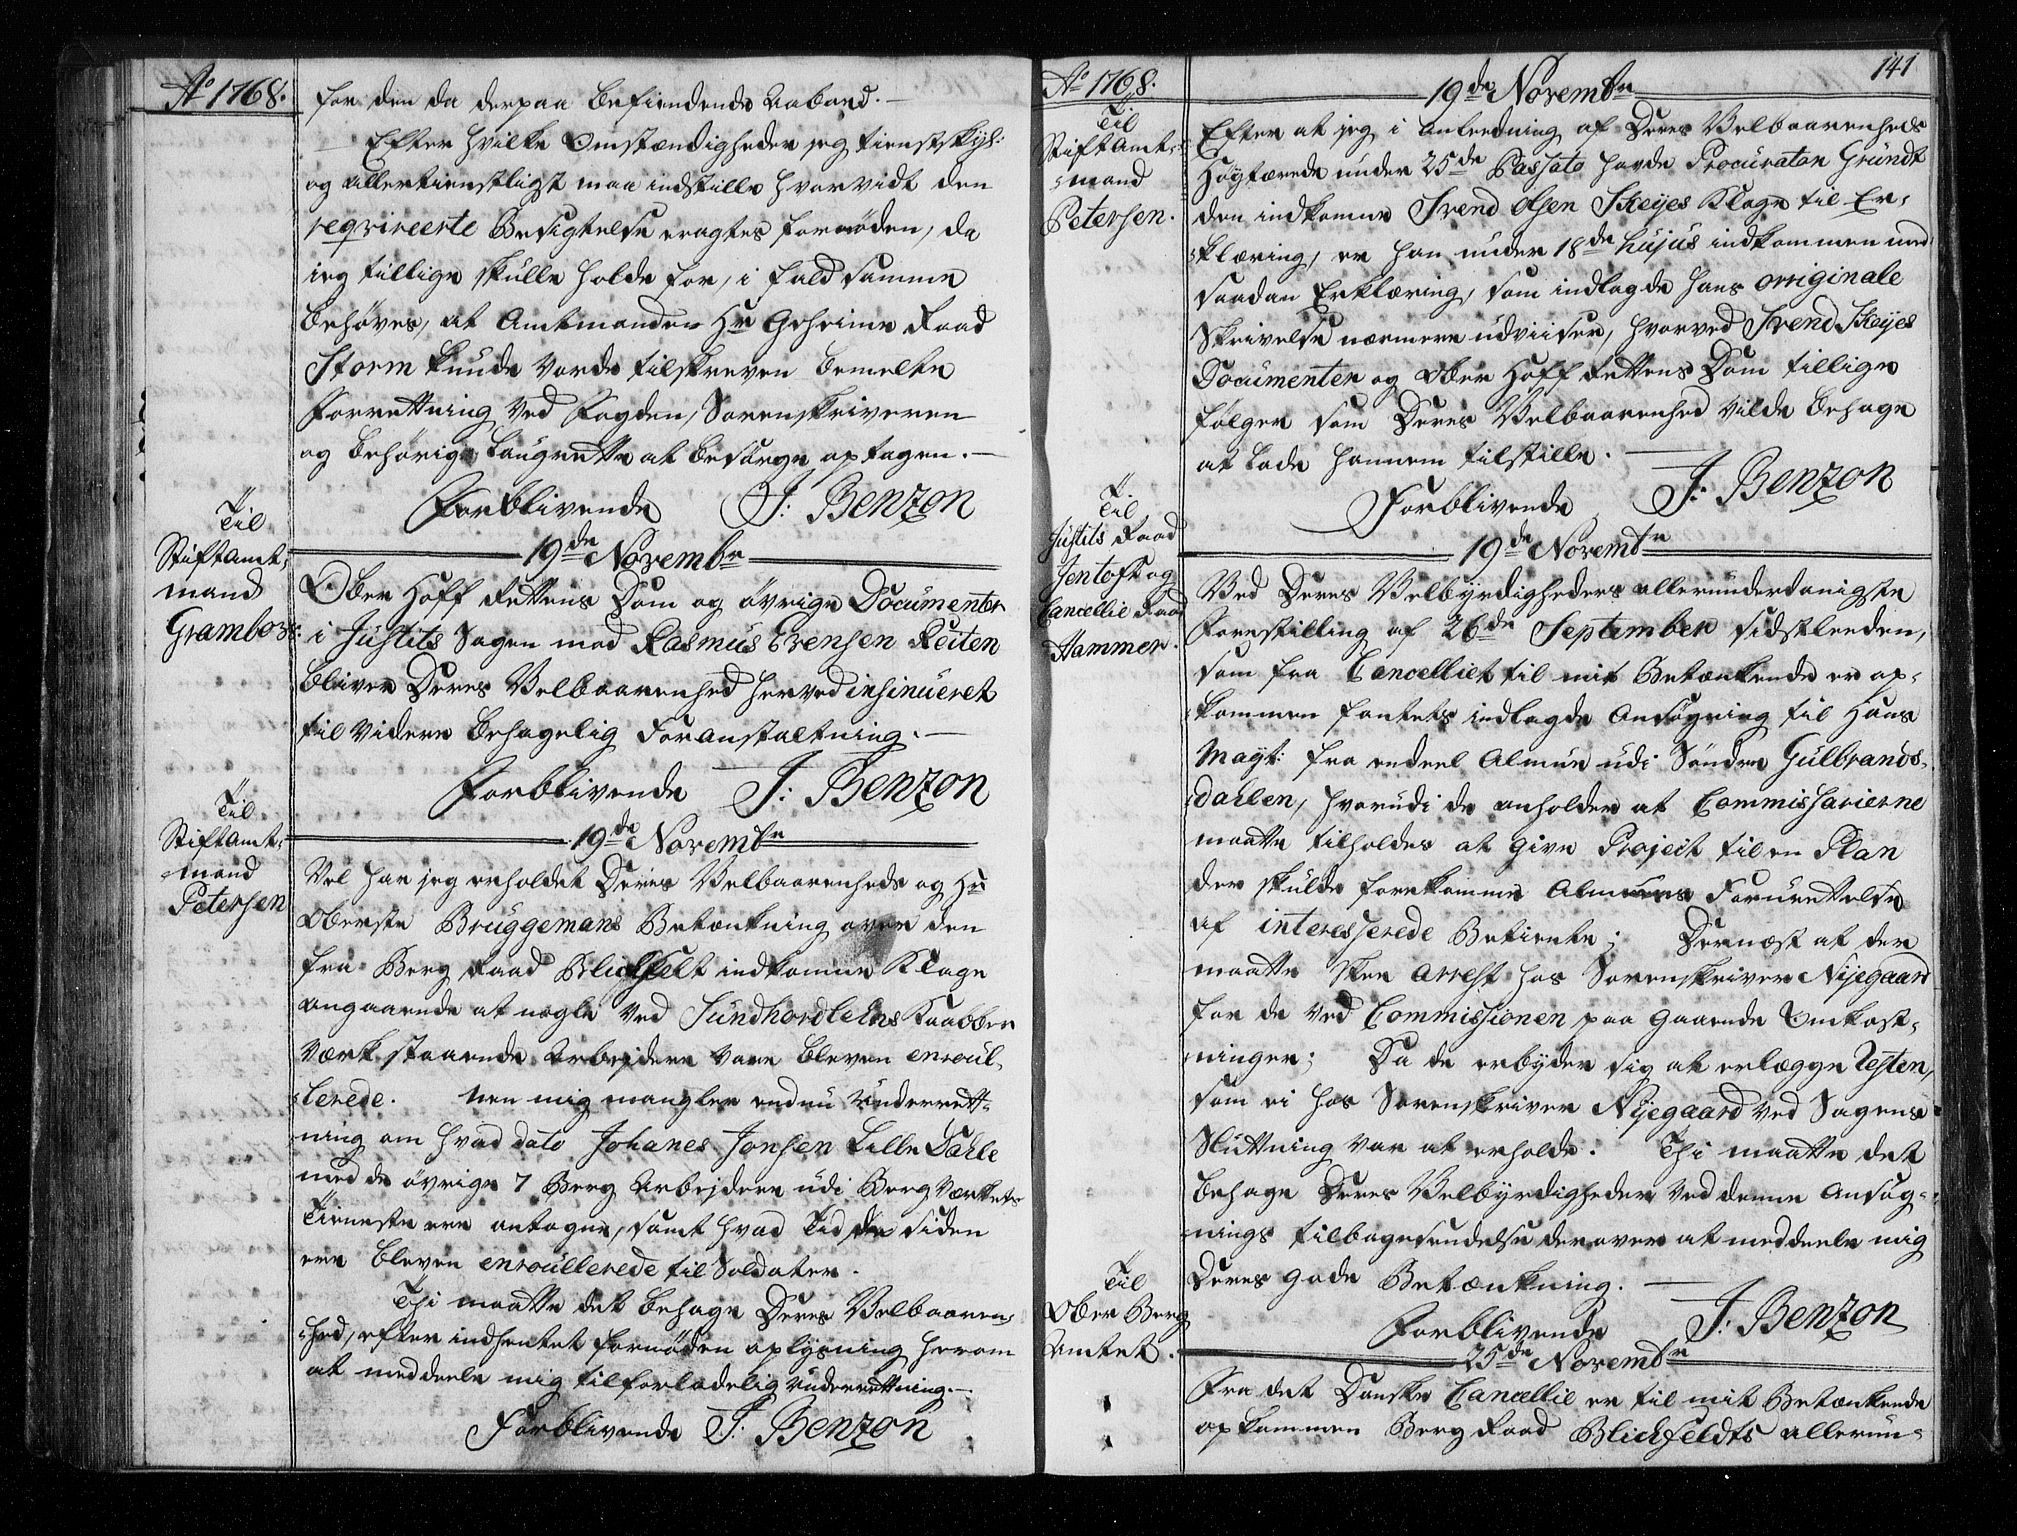 Ao 1768.
for den da derpaa befindende Aabord.—
Efter hvilke Omstændigheder jeg tienstskyl:
og allertienstligst maa indstille hvorvidt den
reqvireerte Besigtelse eragtes fornøden, da
jeg tillige skulle holde for, i fald samme
behøves, at Amtmanden Hr Geheime Raad
Storm kunde vorde tilskreven bemelte
Forretning ved Fogden, Sorenskriveren
og behørig Laugrette at besørge optagen.—
Forblivende J: Benzon
Til
Stiftamt-
mand
Grambow:
19de Novembr
Ober Hoff Rettens Dom og øvrige Documenter
i Justits Sagen mod Rasmus Evensen Reiten
bliver Deres Velbaarenhed herved insinueret
til videre behagelig Foranstaltning.—
Forblivende J: Benzon
Til
Stiftamt-
mand
Petersen
19de Novembr
Vel har jeg erholdet Deres Velbaarenheds og Hr
Oberste Brüggemans Betænkning over den
fra Berg Raad Blichfelt indkomne Klage
angaaende at nogle ved Sundhordlehns Kaabber
Værk staaende Arbejdere vare bleven enroul-
lerede. Men mig mangler endnu Underrett-
ning om hvad dato Johanes Jonsen Lille Dahle
med de øvrige 7 Berg Arbejdere udi Bergværkets
Tieneste ere antagne, samt hvad Tid de siden
ere bleven enroullerede til Soldater.
Thi maatte det behage Deres Velbaaren-
hed, efter indhentet fornøden oplysning herom
at meddeele mig tilforladelig Underrettning.—
Forblivende J: Benzon
141
Ao 1768.
19de Novembr
Til
Stiftamt-
mand
Petersen.
Efter at jeg i Anledning af Deres Velbaarenheds
Høytærede under 25de Passato havde Procurator Gründt
den indkomne Svend Olsen Skeyes Klage til Er-
klæring, er han under 18de hujus indkommen med
saadan Erklæring, som indlagde hans originale
Skrivelse nærmere udviiser, hvorved Svend Skeyes
Documenter og Ober Hoff Rettens Dom tillige
følger som Deres Velbaarenhed vilde behage
at lade hannem tilstille.
Forblivende J: Benzon
Til
Justits Raad
Jentoft og
Cancellie Raad
Hammer.
19de Novembr
Ved Deres Velbyrdigheders allerunderdanigste
Forestilling af 26de September sidstleeden,
som fra Cancelliet til mit Betænkende er op-
kommen fantes indlagde Ansøgning til Hans
Mayt: fra endeel Almue udi Søndre Gulbrands-
dahlen, hvorudi de anholder at Commissarierne
maatte tilholdes at give Project til en Plan
der skulde forekomme Almuens Forurettelse
af interesserede Betiente; Dernæst at der
maatte skee Arrest hos Sorenskriver Nyegaard
for de ved Commissionen paa gaaende Omkost-
ninger; Da de erbyder sig at erlægge Resten,
som ei hos Sorenskriver Nyegaard ved Sagens
Sluttning var at erholde. Thi maatte det
behage Deres Velbyrdigheder ved denne Ansøg-
nings tilbagesendelse derover at meddeele mig
Deres gode Betænkning.—
Forblivende J: Benzon
Til
Ober Berg
Amtet.
25de Novembr
Fra det Danske Cancellie er til mit Betænkende
opkommen Berg Raad Blichfeldts allerun-